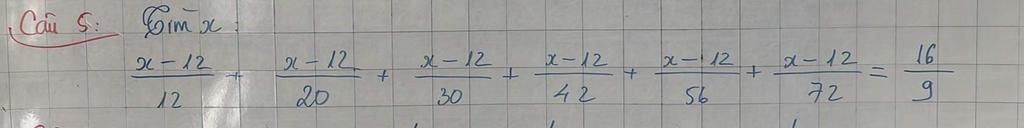 Câu 5: Tìm x:
x-12/12 + x-12/20 + x-12/30 + x-12/42 + x-12/56 + x-12/72 = 16/9